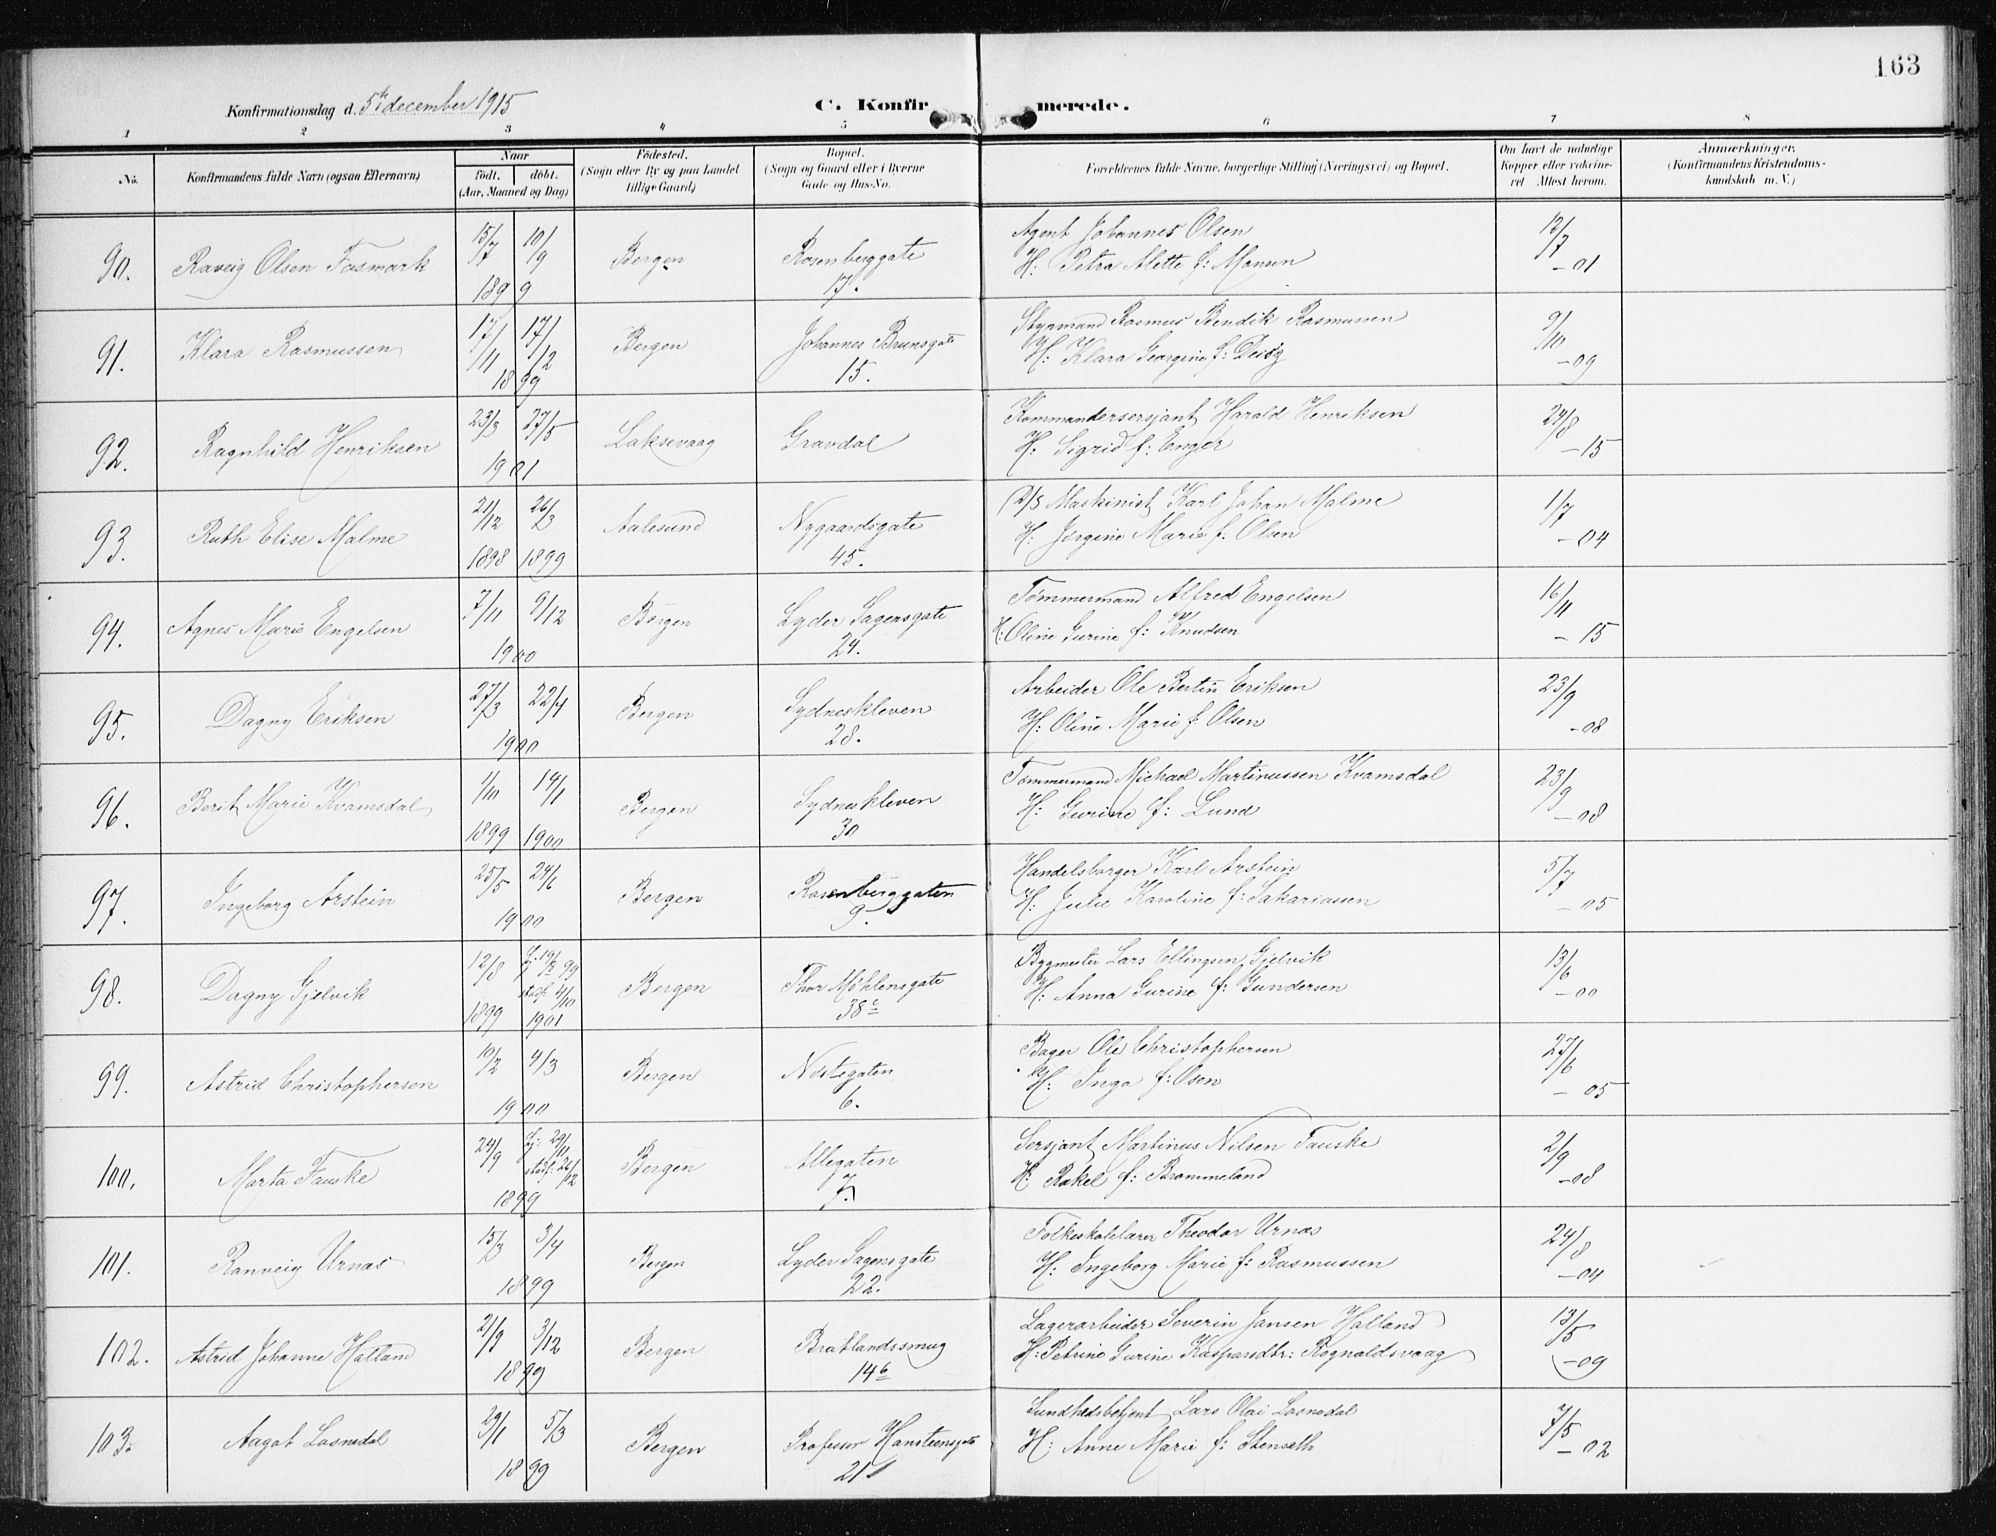 163
Konfirmationsdag d. 5te december 1915
C. Konfirmerede.
1 2 3 4 5 6 7 8
No.
Konfirmandens fulde Navn (ogsaa Efternavn)
Naar
født. døbt.
(Aar, Maaned og Dag)
Fødested.
(Sogn eller By og paa Landet
tillige Gaard)
Bopæl.
(Sogn og Gaard eller i Byerne
Gade og Hus-No.
Forældrenes fulde Navne, borgerlige Stilling (Næringsvei) og Bopæl.
Om havt de naturlige
Kopper eller vaccine-
ret Attest herom.
Anmærkninger.
(Konfirmandens Kristendoms-
kundskab m. V.)
90. Raveig Olsen Fosmark 15/7 10/9 1899 Bergen Rosenberggate 17.
Agent Johannes Olsen 12/7
H: Petra Alette f: Monsen -01
91. Klara Rasmussen 17/11 17/12 1899 Bergen Johannes Brunsgate 15.
Styrmand Rasmus Bendik Rasmussen 9/10
H: Klara Georgine f: -09
92. Ragnhild Henriksen 23/3 27/5 1901 Laksevaag Gravdal
Kommandersersjant Harald Henriksen 24/8
H: Sigrid f: Enger -15
93. Ruth Elise Malme 21/12 1898 26/3 1899 Aalesund Nygaardsgate 45.
D/S Maskinist Karl Johan Malme 1/7
H: Jørgine Marie f: Olsen -04
94. Agnes Marie Engelsen 7/11 9/12 1900 Bergen Lyder Sagensgate 24.
Tømmermand Alfred Engelsen 16/11
H: Oline Gurine f: Knudsen -15
95. Dagny Eriksen 27/3 22/4 1900 Bergen Sydneskleven 28.
Arbeider Ole Bertin Eriksen 23/9
H: Oline Marie f: Olsen -08
96. Berit Marie Kvamsdal 1/10 1899 14/1 1900 Bergen Sydneskleven 30
Tømmermand Michael Martinussen Kvamsdal 23/9
H: Gurine f: Lund -08
97. Ingeborg Arstein 25/5 24/6 1900 Bergen Rosenberggaten 9.
Handelsborger Karl Arstein 5/7
H: Julie Karoline f: Sakariassen -05
98. Dagny Gjelvik 12/8 1899 99 stadf. 4/10 1901 Bergen Thor Möhlensgate 38c
Bygmester Lars Ellingsen Gjelvik 13/6
H: Anna Gurine f: Gundersen -00
99. Astrid Christophersen 10/2 4/3 1900 Bergen Nøstegaten 6.
Bager Ole Christophersen 27/6
H: Inga f: Olsen -05
100. Marta Fauske 24/9 Hj: 29/11 stadf: 26/12 1899 Bergen Allegaten 7.
Sersjant Martinus Nilsen Fauske 2/9
H: Rakel f: Brommeland -08
101. Ranveig Urnas 15/3 3/4 1899 Bergen Lyder Sagensgate 22.
Folkeskolelærer Theodor Urnas 24/8
H: Ingeborg Marie f: Rasmussen -04
102. Astrid Johanne Halland 21/9 3/12 1899 Bergen Bratlandssmug 14b
Lagerarbeider Severin Jansen Halland 13/5
H: Petrine Gurine Kaspersdtr: Rognaldsvaag -09
103. Aagot Losnedal 29/1 5/3 1899 Bergen Professor Hansteensgate 21
Sundhedsbetjent Lars Olai Losnedal 7/5
H: Anne Marie f: Stenseth -02